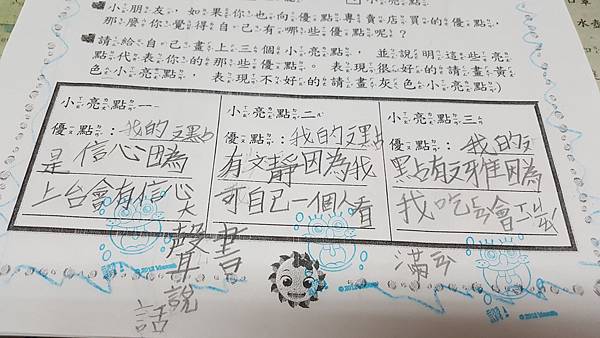 小朋友，如果你也向優點專賣店買的優點，
那麼你覺得自己有哪些優點呢？
請給自己畫上三個小亮點，並說明這些亮
點代表你的那些優點。表現很好的請畫黃
色小亮點，表現不好的請畫灰色小亮點)
小亮點一
優點：我的點
是信心因為
上台會有信心
大聲說
話
小亮點二
優點：我的點
有文靜因為我
可自己一個人看
書
小亮點三
優點：我的
點有雅因為
我吃會
滿